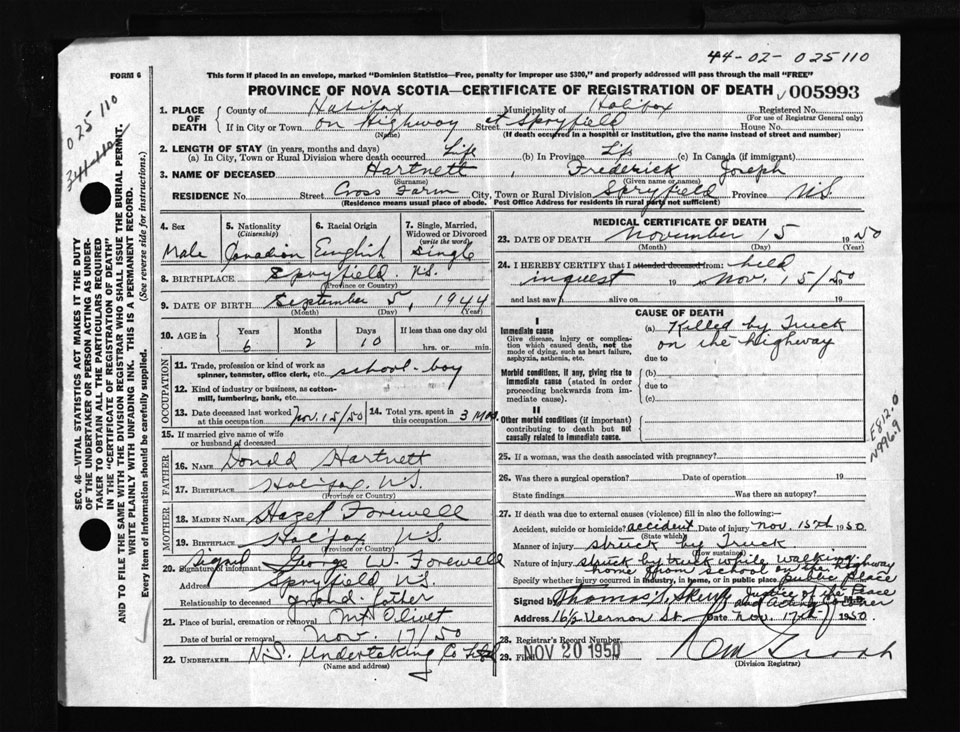 44-02-025110
FORM 6
This form if placed in an envelope, marked "Dominion Statistics—Free, penalty for improper use $300," and properly addressed will pass through the mail "FREE"
PROVINCE OF NOVA SCOTIA—CERTIFICATE OF REGISTRATION OF DEATH 005993
025110
SEC. 46—VITAL STATISTICS ACT MAKES IT THE DUTY
OF THE UNDERTAKER OR PERSON ACTING AS UNDER-
TAKER TO OBTAIN ALL THE PARTICULARS REQUIRED
IN THE "CERTIFICATE OF REGISTRATION OF DEATH"
AND TO FILE THE SAME WITH THE DIVISION REGISTRAR WHO SHALL ISSUE THE BURIAL PERMIT.
WRITE PLAINLY WITH UNFADING INK. THIS IS A PERMANENT RECORD.
Every item of information should be carefully supplied. (See reverse side for instructions.)
1. PLACE OF DEATH County of Halifax Municipality of Halifax Registered No.
(For use of Registrar General only)
If in City or Town on Highway at Spryfield Street House No.
(Name) (If death occurred in a hospital or institution, give the name instead of street and number)
2. LENGTH OF STAY (in years, months and days)
(a) In City, Town or Rural Division where death occurred Life (b) In Province Life (c) In Canada (if immigrant)
3. NAME OF DECEASED Hartnett, Frederick Joseph
(Surname) (Given name or names)
RESIDENCE No. Street Cross Farm City, Town or Rural Division Spryfield Province N.S.
(Residence means usual place of abode. Post Office Address for residents in rural parts not sufficient)
4. Sex 5. Nationality (Citizenship) 6. Racial Origin 7. Single, Married, Widowed or Divorced (write the word)
Male Canadian English Single
8. BIRTHPLACE Spryfield N.S.
(Province or Country)
9. DATE OF BIRTH September 5, 1944
(Month) (Day) (Year)
10. AGE in Years Months Days If less than one day old
6 2 10 hrs. or min.
OCCUPATION
11. Trade, profession or kind of work as spinner, teamster, office clerk, etc. school-boy
12. Kind of industry or business, as cotton-mill, lumbering, bank, etc.
13. Date deceased last worked at this occupation Nov. 15/50 14. Total yrs. spent in 3 Mos.
15. If married give name of wife or husband of deceased
FATHER
16. NAME Donald Hartnett
17. BIRTHPLACE Halifax, N.S.
(Province or Country)
MOTHER
18. MAIDEN NAME Hazel Forewell
19. BIRTHPLACE Halifax N.S.
(Province or Country)
20. Signature of informant Signed George W. Forewell
Address Spryfield N.S.
Relationship to deceased grand-father
21. Place of burial, cremation or removal Mt Olivet
Date of burial or removal Nov. 17/50
22. UNDERTAKER N.S. Undertaking Co Ltd
(Name and address)
MEDICAL CERTIFICATE OF DEATH
23. DATE OF DEATH November 15 1950
(Month) (Day) (Year)
24. I HEREBY CERTIFY that I attended deceased from: held
inquest 19 Nov. 15/50
and last saw h alive on 19
CAUSE OF DEATH
I
Immediate cause
Give disease, injury or complication which caused death, not the mode of dying, such as heart failure, asphyxia, asthenia, etc.
(a) Killed by Truck
on the Highway
due to
Morbid conditions, if any, giving rise to immediate cause (stated in order proceeding backwards from immediate).
(b)
due to
(c)
II
Other morbid conditions (if important) contributing to death but not causally related to immediate cause.
E812.0
N996.9
25. If a woman, was the death associated with pregnancy?
26. Was there a surgical operation? Date of operation 19
State findings Was there an autopsy?
27. If death was due to external causes (violence) fill in also the following:
Accident, suicide or homicide? accident Date of injury Nov. 15th 1950
(State which)
Manner of injury struck by Truck
(How sustained)
Nature of injury struck by truck while walking
home from school on the highway
Specify whether injury occurred in industry, in home, or in public place public place
Signed by Thomas Justice of the Peace
and acting Coroner M.D.
Address 16½ Vernon St. Date Nov. 17th 1950.
28. Registrar's Record Number
29. Filed NOV 20 1950
(Division Registrar)